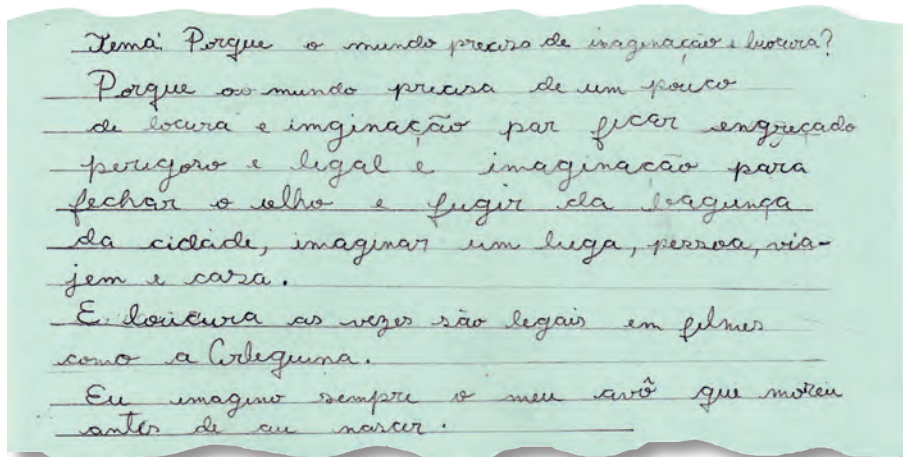 Tema: Porque o mundo precisa de imaginacção e luocura?
Porque oo mundo precisa de um pouco
de locura e imginacção par ficar engreçado
perigoso e legal e imaginacão para
fechar o olho e fugir da bagunça
da cidade, imaginar um luga, pessoa, via-
jem e casa.
E loucura as vezes são legais em filmes
como a Arlequina.
Eu imagino sempre o meu avô que moreu
antes de eu nascer.